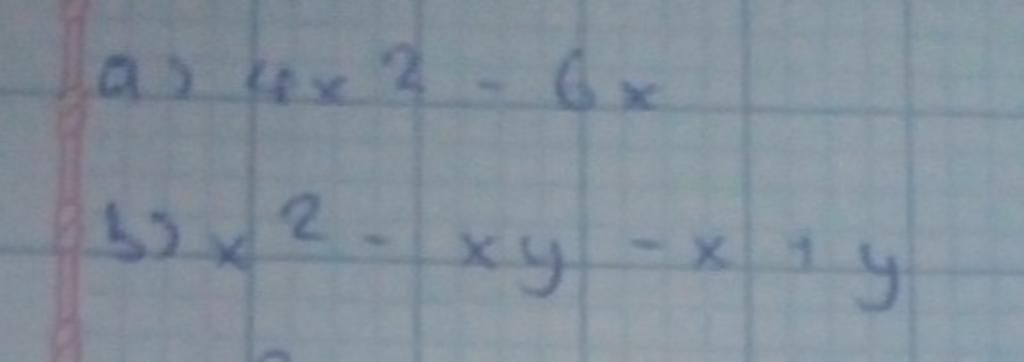 a) 4x² - 6x
b) x² - xy - x + y